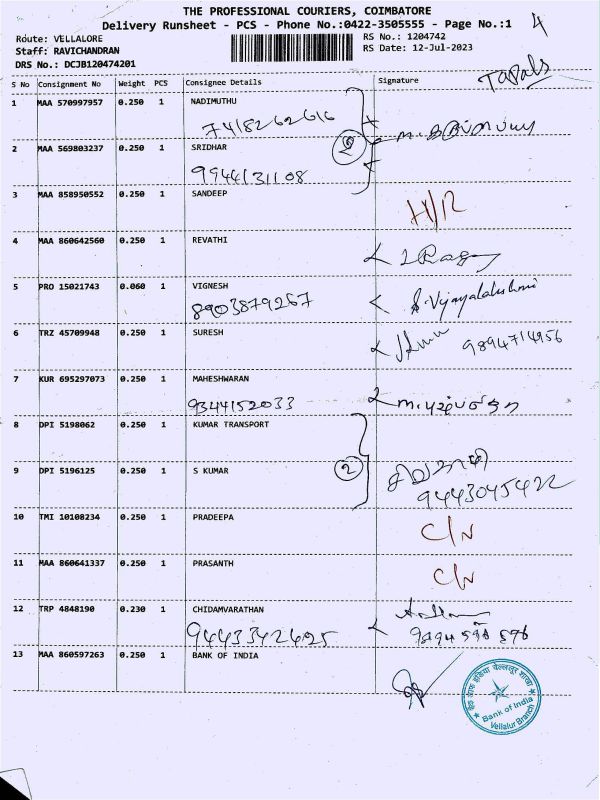 THE PROFESSIONAL COURIERS, COIMBATORE
Delivery Runsheet - PCS - Phone No.:0422-3505555 - Page No.:1 4
Route: VELLALORE RS No.: 1204742
Staff: RAVICHANDRAN RS Date: 12-Jul-2023
DRS No.: DCJB120474201
S No Consignment No Weight PCS Consignee Details Signature
Tapals
1 MAA 570997957 0.250 1 NADIMUTHU
7418262616
2 MAA 569803237 0.250 1 SRIDHAR
9944131108
3 MAA 858950552 0.250 1 SANDEEP
H/R
4 MAA 860642560 0.250 1 REVATHI
5 PRO 15021743 0.060 1 VIGNESH
8903879267 S. Vijayalakshmi
6 TRZ 45709948 0.250 1 SURESH
9894714956
7 KUR 695297073 0.250 1 MAHESHWARAN
9344152033
8 DPI 5198062 0.250 1 KUMAR TRANSPORT
2
9 DPI 5196125 0.250 1 S KUMAR
9443045422
10 TMI 10108234 0.250 1 PRADEEPA
C/N
11 MAA 860641337 0.250 1 PRASANTH
C/N
12 TRP 4848190 0.230 1 CHIDAMVARATHAN
9443342625
13 MAA 860597263 0.250 1 BANK OF INDIA
बैंक ऑफ इंडिया वेल्लूर शाखा
Bank of India
Vellalur Branch